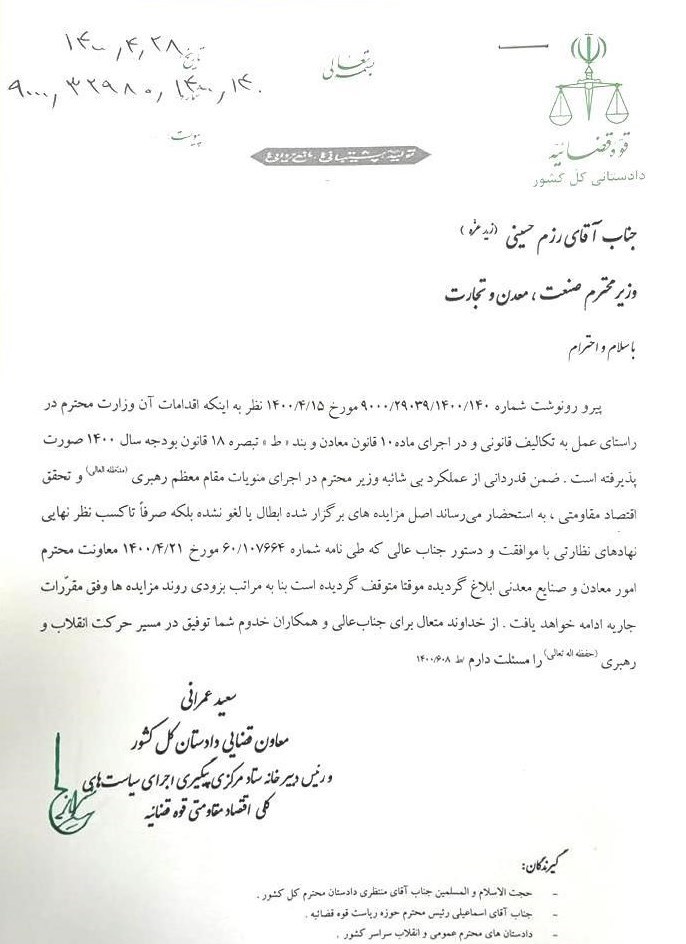 بسمه تعالی
تاریخ ۱۴۰۰,۴,۲۸
۹۰۰۰,۳۲۹۸۰,۱۴۰۰,۱۴۰
پیوست
تولید، پشتیبانی‌ها، مانع‌زدایی‌ها
قوه قضائیه
دادستانی کل کشور
جناب آقای رزم حسینی (زید عزه)
وزیر محترم صنعت ، معدن و تجارت
با سلام و احترام
پیرو رونوشت شماره ۹۰۰۰/۲۹۰۳۹/۱۴۰۰/۱۴۰ مورخ ۱۴۰۰/۴/۱۵ نظر به اینکه اقدامات آن وزارت محترم در
راستای عمل به تکالیف قانونی و در اجرای ماده۱۰ قانون معادن و بند « ط » تبصره ۱۸ قانون بودجه سال ۱۴۰۰ صورت
پذیرفته است . ضمن قدردانی از عملکرد بی شائبه وزیر محترم در اجرای منویات مقام معظم رهبری (مدظله العالی) و تحقق
اقتصاد مقاومتی ، به استحضار می‌رساند اصل مزایده های برگزار شده ابطال یا لغو نشده بلکه صرفاً تاکسب نظر نهایی
نهادهای نظارتی با موافقت و دستور جناب عالی که طی نامه شماره ۶۰/۱۰۷۶۶۴ مورخ ۱۴۰۰/۴/۲۱ معاونت محترم
امور معادن و صنایع معدنی ابلاغ گردیده موقتا متوقف گردیده است بنا به مراتب بزودی روند مزایده ها وفق مقرّرات
جاریه ادامه خواهد یافت . از خداوند متعال برای جناب‌عالی و همکاران خدوم شما توفیق در مسیر حرکت انقلاب و
رهبری (حفظه اله تعالی) را مسئلت دارم /ط ۱۴۰۰/۶۰۸
سعید عمرانی
معاون قضایی دادستان کل کشور
و رئیس دبیرخانه ستاد مرکزی پیگیری اجرای سیاست‌های
کلی اقتصاد مقاومتی قوه قضائیه
گیرندگان:
- حجت الاسلام و المسلمین جناب آقای منتظری دادستان محترم کل کشور .
- جناب آقای اسماعیلی رئیس محترم حوزه ریاست قوه قضائیه .
- دادستان های محترم عمومی و انقلاب سراسر کشور .